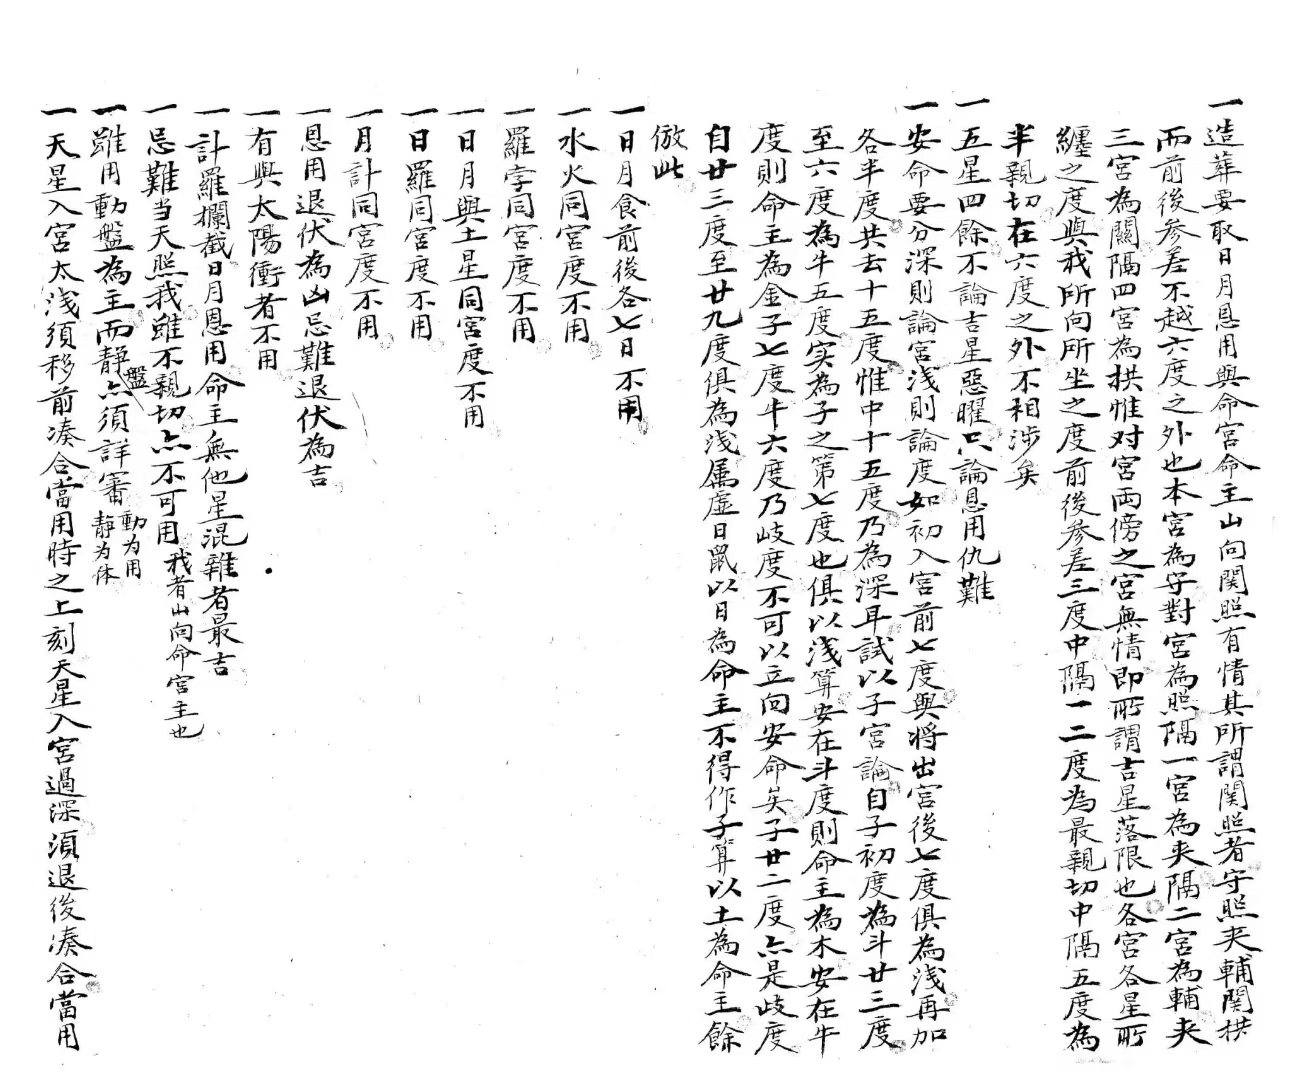 一造葬要取日月恩用與命宮命主山向関照有情其所謂関照者守照夾輔関拱
而前後參差不越六度之外也本宮為守對宮為照隔一宮為夾隔二宮為輔夾
三宮為關隔四宮為拱惟对宮両傍之宮無情即所謂吉星落限也各宮各星所
纏之度與我所向所坐之度前後參差三度中隔一二度為最親切中隔五度為
半親切在六度之外不相涉矣
一五星四餘不論吉星惡曜只論恩用仇難
一安命要分深則論宮浅則論度如初入宮前七度與将出宮後七度俱為浅再加
各半度共去十五度惟中十五度乃為深耳試以子宮論自子初度為斗廿三度
至六度為牛五度实為子之第七度也俱以浅算安在斗度則命主為木安在牛
度則命主為金子七度牛六度乃歧度不可以立向安命矣子廿二度亦是歧度
自廿三度至廿九度俱為浅属虚日鼠以日為命主不得作子算以土為命主餘
倣此
一日月食前後各七日不用
一水火同宮度不用
一羅孛同宮度不用
一日月與土星同宮度不用
一日羅同宮度不用
一月計同宮度不用
一恩用退伏為凶忌難退伏為吉
一有與太陽衝者不用
一計羅欄截日月恩用命主無他星混雜者最吉
一忌難当天照我雖不親切亦不可用我者山向命宮主也
一雖用動盤為主而静盤亦須詳審動为用静为体
一天星入宮太浅須移前凑合當用時之上刻天星入宮過深須退後凑合當用